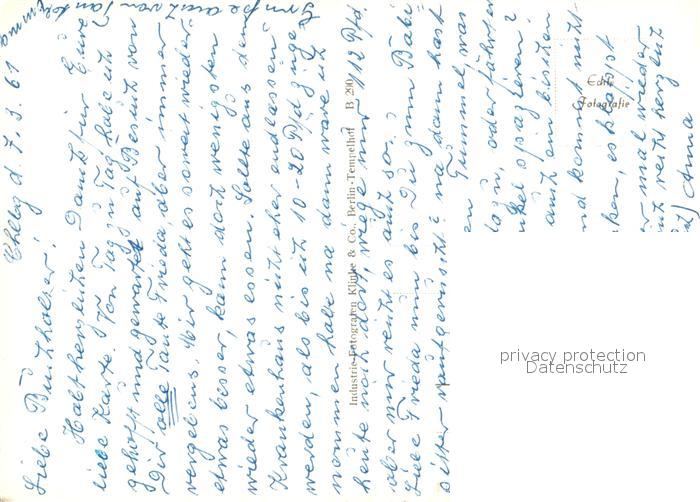 Chlbg d. 7.3.61
Liebe Buchholzer!
Habt herzlichen Dank für Eure
liebe Karte. Von Tag zu Tag habe ich
gehofft und gewartet auf Besuch von
Dir olle Tante Frieda, aber immer
vergebens. Mir geht es soweit wieder
etwas besser, kann doch wenigstens
wieder etwas essen. Sollte aus dem
Krankenhaus nicht eher entlassen
werden, als bis ich 10-20 Pfd zuge-
nommen habe na dann wäre ich
heute noch dort, wiege nur 112 Pfd.
aber mir reicht es auch so.
Liebe Frieda nun bis Du zum Babi
sitter raufgerutscht na dann hast
en Tummel, was
dazu, oder fährst
nkel spazieren?
auch ein bischen
nd kommt nicht
ken, es bläst
mal wieder
uch recht herzlich
Anna
Grüsse auch von Tante
Industrie-Fotografen Klinke & Co., Berlin-Tempelhof B 290
Echte
Fotografie
privacy protection
Datenschutz